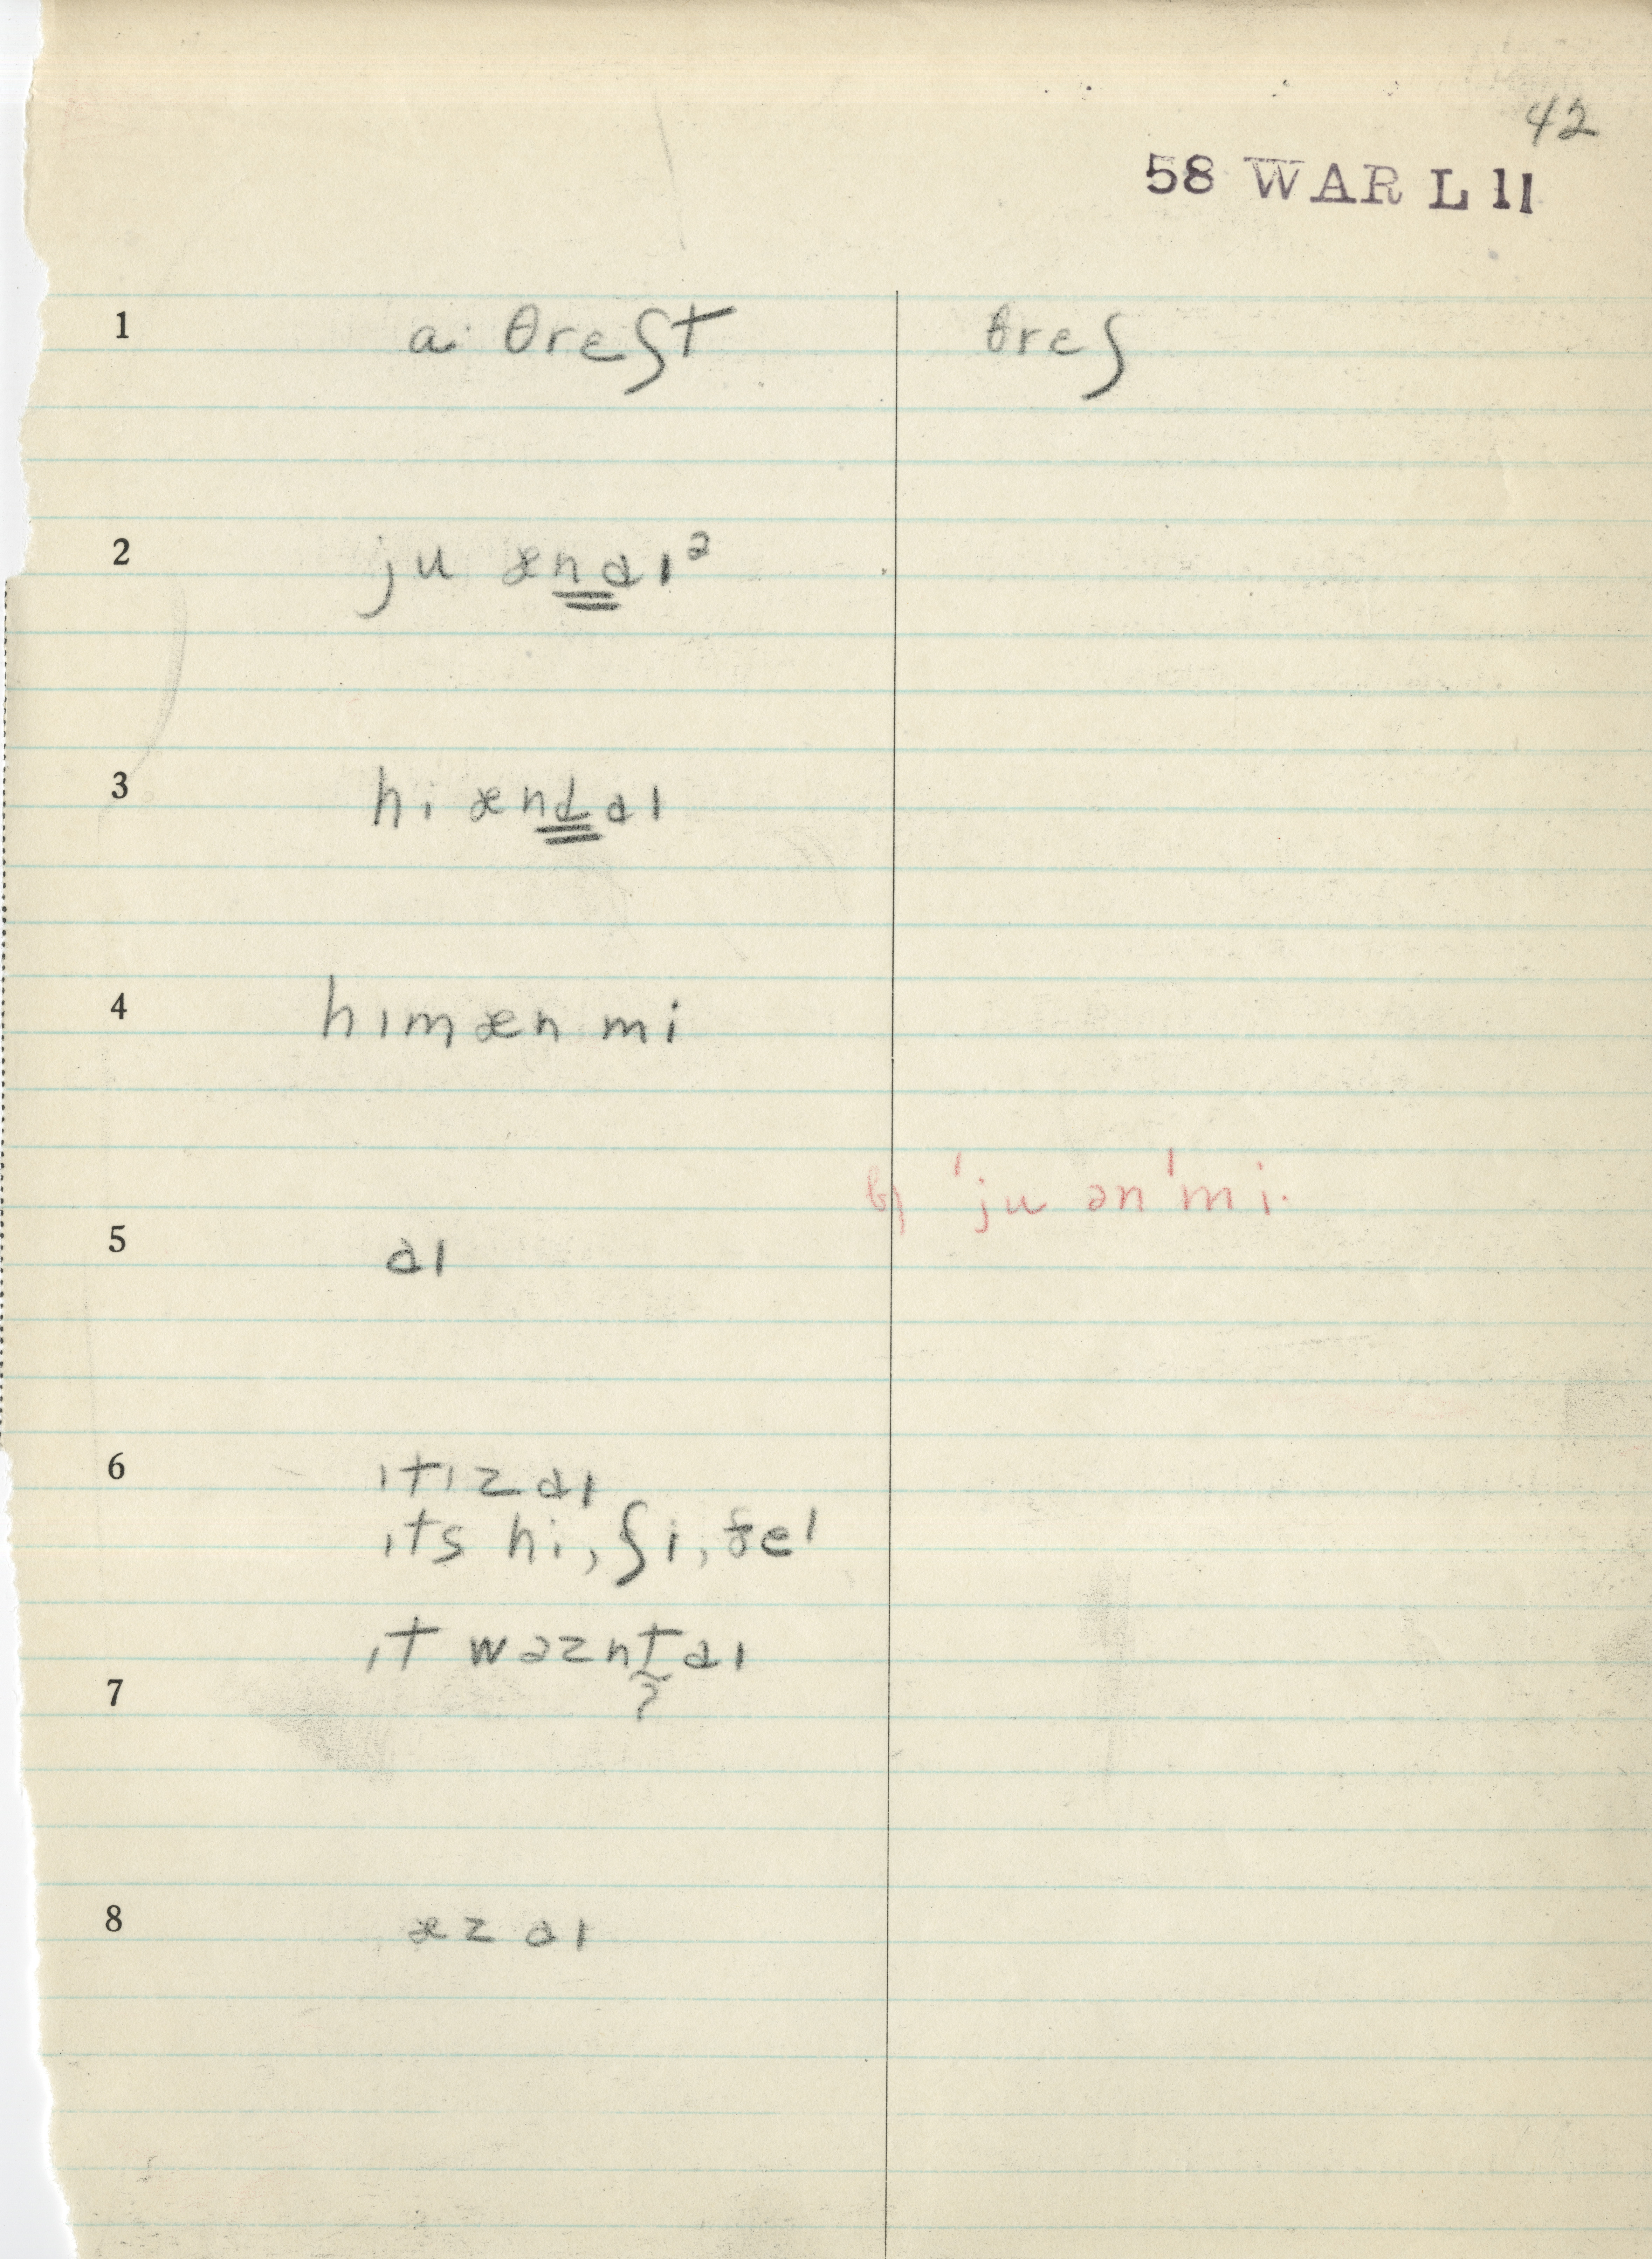 42
58 WAR L 11
1 a· θrɛʃt θrɛʃ
2 ju ænaɪ²
3 hi ændaɪ
4 hɪmæn mi
b) 'ju ən'mi·
5 aɪ
6 ɪtɪz aɪ
ɪts hi, ʃi, ðeɪ
ɪt wəznt aɪ
?
7
8 æz aɪ